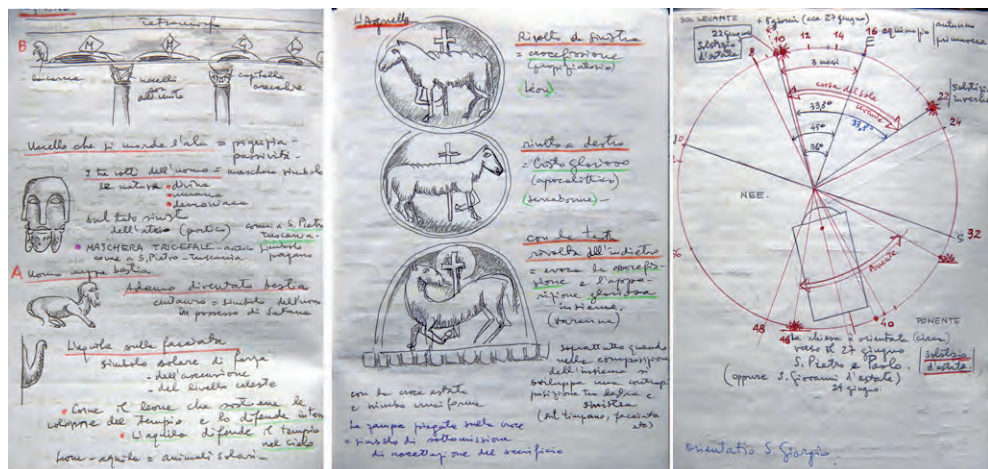 Tetramorfo
B
M
M
G
L
uccelli
con
capitello
Uccello che si morde l'ala = pigrizia -
passività -
I tre volti dell'uomo = maschera simbolo
la natura • divina
• umana
• demoniaca
Sul lato sinistro
dell'atrio (portico)
come a S. Pietro
Tuscania.
• MASCHERA TRICEFALE - antico simbolo
come a S. Pietro - Tuscania. pagano
A
Uomo bestia
Adamo diventato bestia
centauro = simbolo dell'uomo
in processo di Satana
L'aquila sulla facciata
simbolo solare di forza
- dell'ascensione
- del livello celeste
• Come il leone che sostiene le
colonne del tempio e lo difende
• L'aquila difende il tempio
nel cielo
leone - aquila = animali solari -
L'Agnello
Rivolto a sinistra
= crocefissione
(propiziatorio)
(León)
rivolto a destra
= Cristo glorioso
(apocalittico)
con la testa
rivolta all'indietro
= evoca la crocefis-
sione e l'appa-
rizione gloriosa
insieme.
(Varenne)
soprattutto quando
nella composizione
dell'insieme si
sviluppa una contrap-
posizione tra destra e
sinistra
(sul timpano, facciata
etc)
con la croce astata
e nimbo cruciforme
La zampa piegata sulla croce
= simbolo di sottomissione
di accettazione del sacrificio
SOL LEVANTE
+ 5 giorni (circa 27 giugno)
22 giugno
Solstizio
d'estate
8
10
12
14
16
E
equinozio
autunno
primavera
3 mesi
corsa del sole
33,8°
33,8°
45°
36°
22
solstizio
inverno
24
NEE.
32
S
36
40
48
46
Ponente
PONENTE
La chiesa è orientata (circa)
verso il 27 giugno
S. Pietro e Paolo.
(oppure S. Giovanni d'estate)
24 giugno
solstizio
d'estate
orientatio S. Giorgio